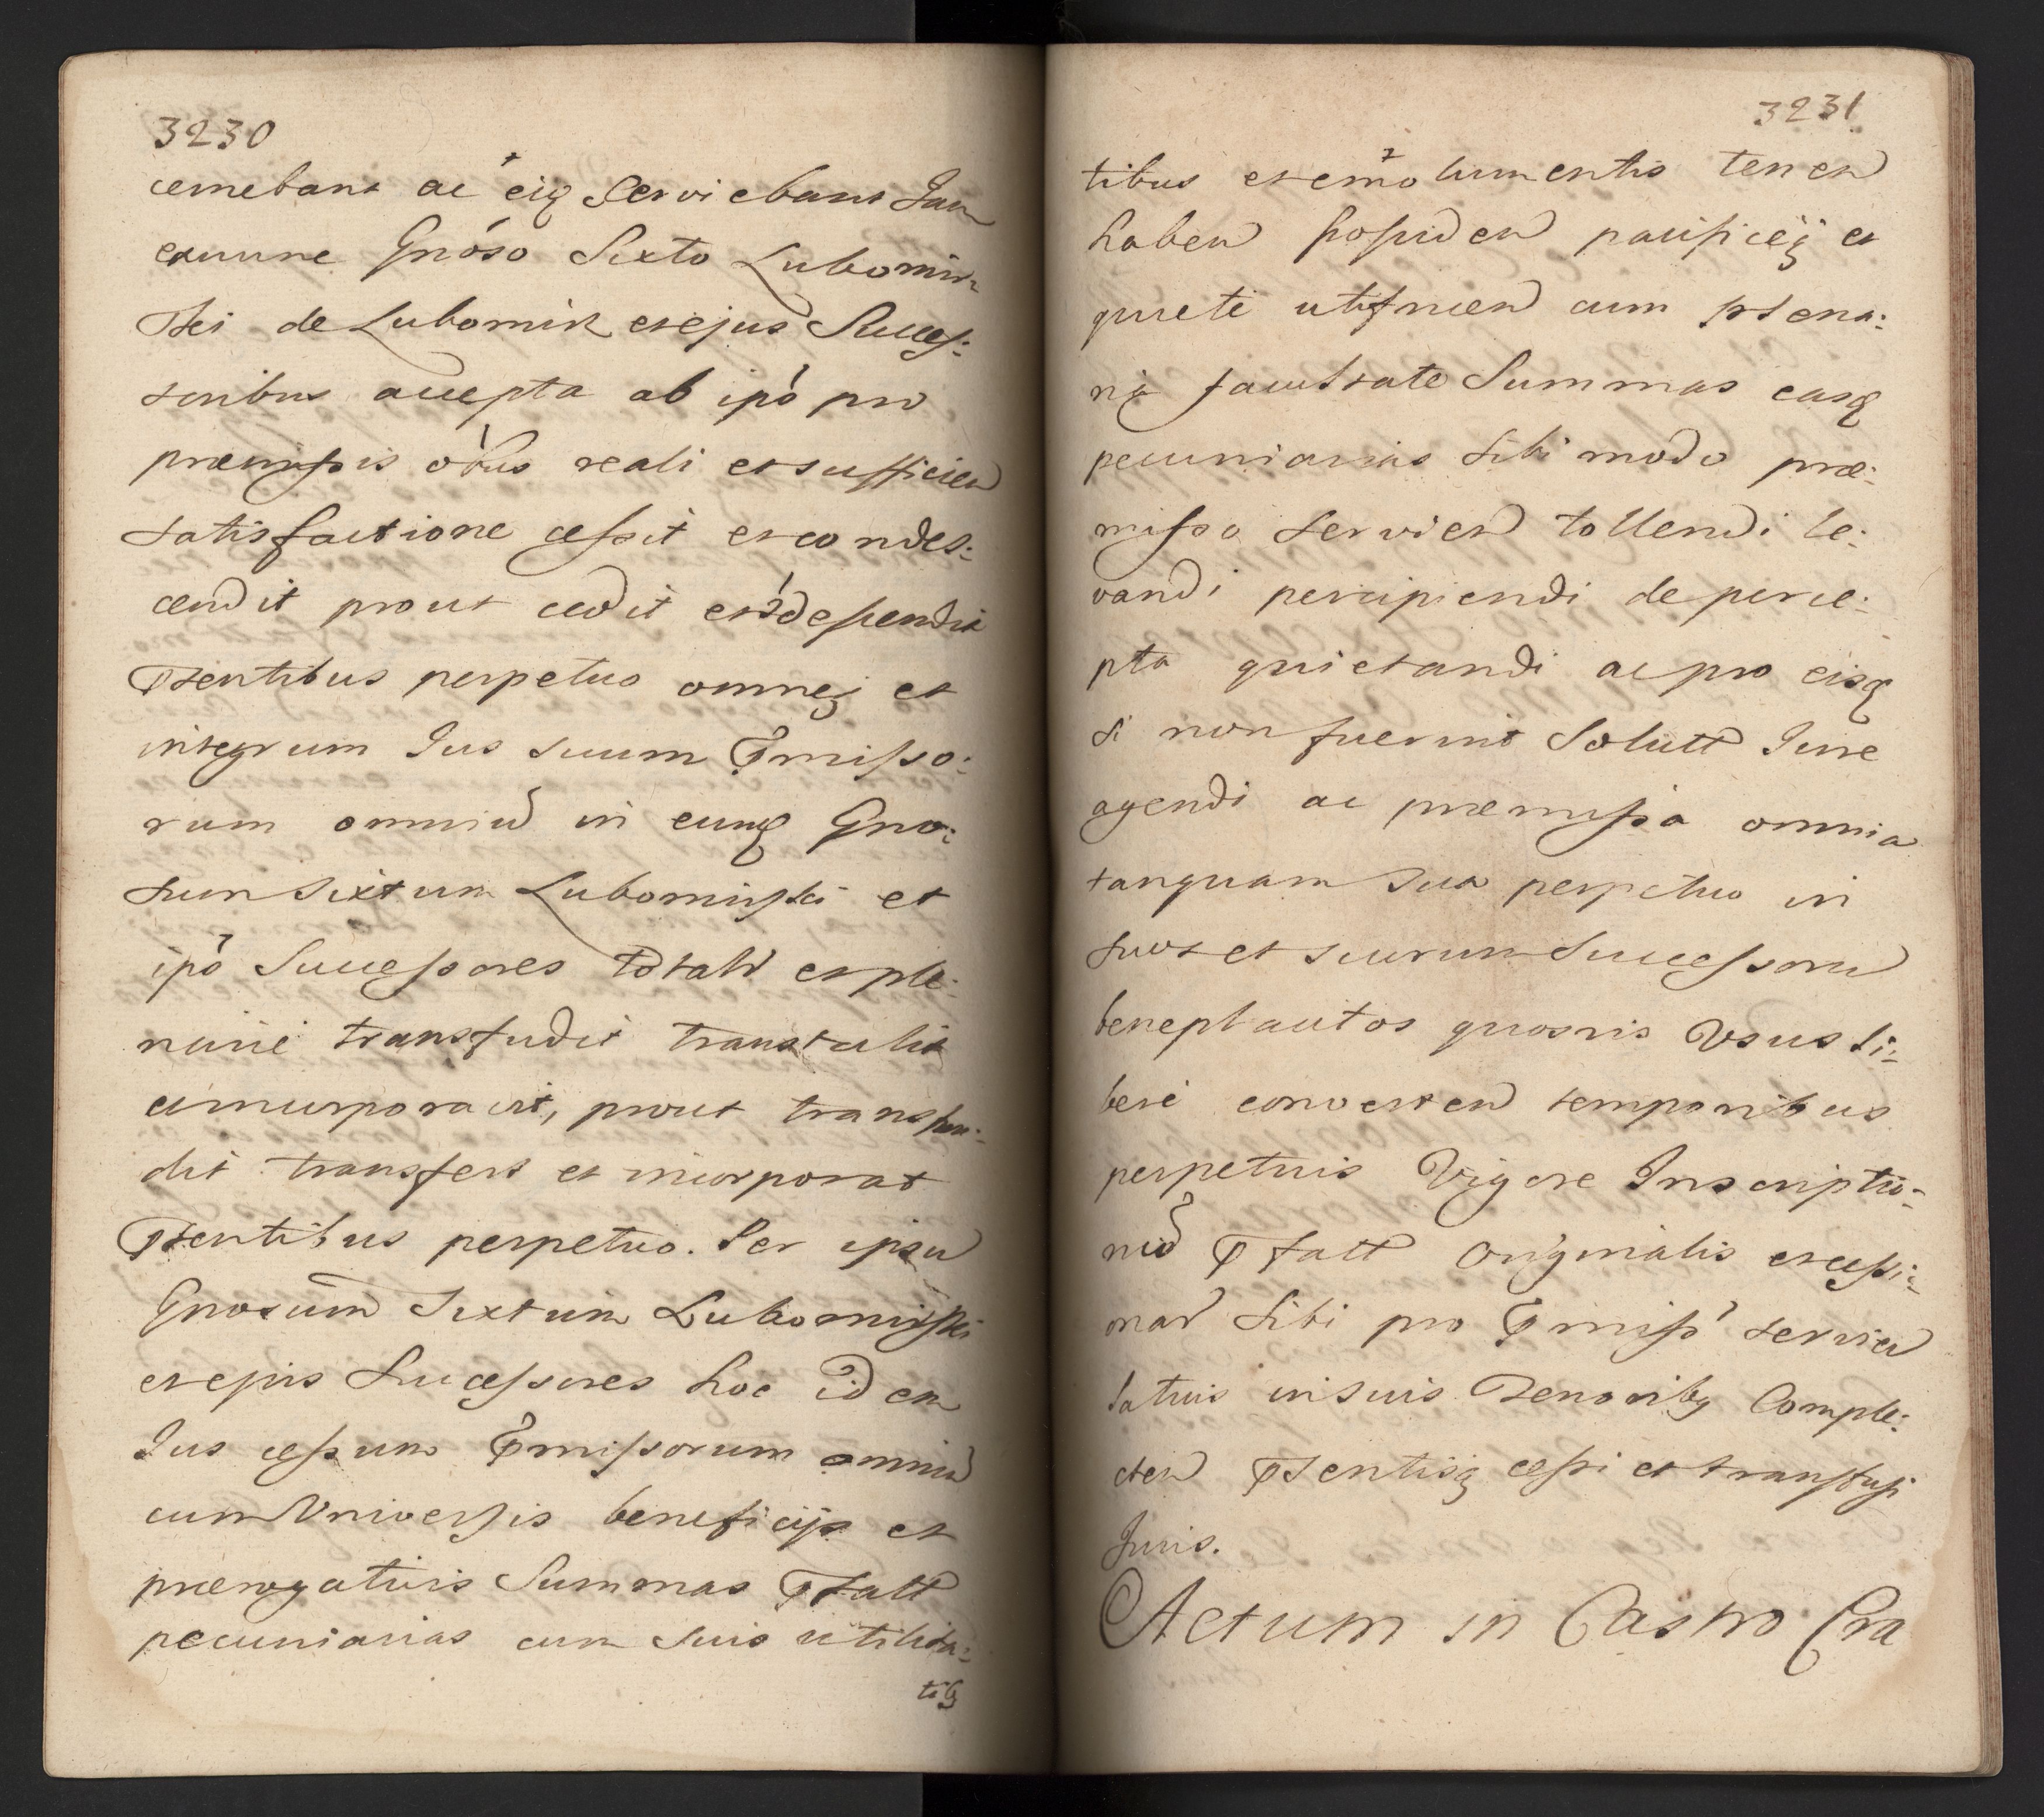 3230
cernebant ac eiq Serviebant Jam
exnunc Gnoso Sixto Lubomir
skei de Lubomir et ejus Succes:
soribus accepta ab ipo pro
præmissis obus reali et sufficien
satisfactione cessit et condes:
cendit prout cedit et
psentibus perpetuo omnej et
integrum Jus suum pmisso:
rum omniu in eunq Gno:
sum Sixtum Lubomirski et
ipo Successores total et ple:
narie transfudit transtulit
et incorporavit, prout transfun:
dit transfert et incorporat
psentibus perpetuo. Per ipsu
Gnosum Sixtum Lubomirski
et ejus Successores hoc idem
Jus cessum pmissorum omniu
cum Universis beneficijs et
prærogativis Summas pfatt
pecuniarias cum suis utilita:
tibq
3231
tibus et emolumentis tenen
haben possiden pacificej et
quiete utifruen cum plena:
ria facultate Summas easq
pecuniarias Sibi modo præ:
misso servien tollendi le:
vandi percipiendi de perce:
pta quietandi ac pro eisq
si non fuerint Solutt Jure
agendi ac præmissa omnia
tanquam sua perpetuo in
suos et suorum Successoru
beneplacitos quosvis Usus li:
bere converten temporibus
perpetuis Vigore Inscriptio:
nis pfatt originalis et cessi:
onar Sibi pro pmiss servien
latius in suis Tenoribq Comple:
cten psentisq cessi et transfusi
Juris.
Actum in Castro Cra